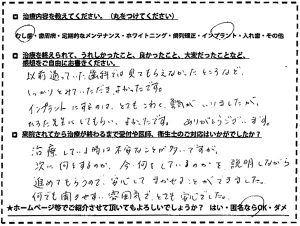 □ 治療内容を教えてください。（丸をつけてください）
むし歯・歯周病・定期的なメンテナンス・ホワイトニング・歯列矯正・インプラント・入れ歯・その他
□ 治療を終えられて、うれしかったこと、良かったこと、大変だったことなど、
感想をご自由にお書きください。
以前通っていた歯科では見てもらえなかったところなど、
しっかりみていただきよかったです。
インプラントにするのは、とてもこわく、勇気がいりましたが、
先生にしてもらい、よかったです。ありがとうございます。
□ 来院されてから治療が終わるまで受付や医師、衛生士のご対応はいかがでしたか？
治療している時は不安なことが多いですが、
次に何をするのか、今何をしているのかを説明しながら
進めてもらうので、安心してまかせることができました。
何でも聞きやすい雰囲気で、とても安心でした。
★ホームページ等でご紹介させて頂いてもよろしいでしょうか？ はい・匿名ならOK・ダメ